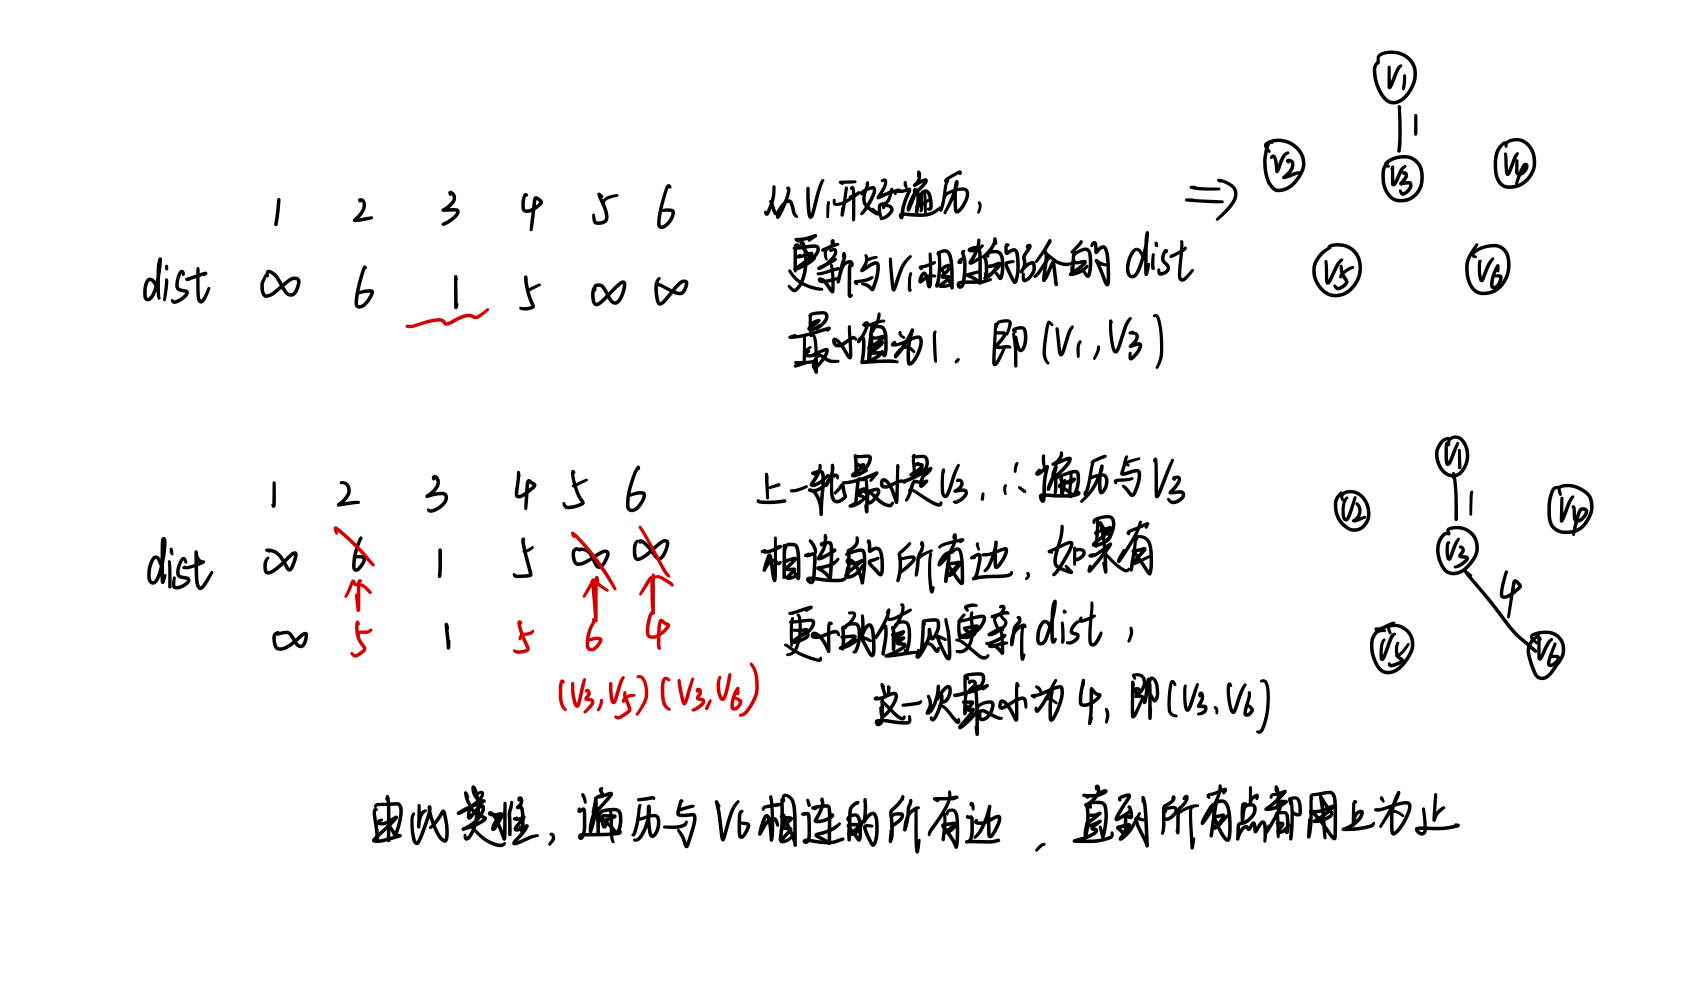 1 2 3 4 5 6
dist ∞ 6 1 5 ∞ ∞
从V1开始遍历,
更新与V1相连的的dist
最小值为1. 即(V1,V3)
⇒
V1
1
V2 V3 V4
V5 V6
1 2 3 4 5 6
dist ∞ 6 1 5 ∞ ∞
∞ 5 1 5 6 4
(V3,V5) (V3,V6)
上一轮最小是V3, ∴遍历与V3
相连的所有边, 如果有
更小的值则更新dist,
这一次最小为4, 即(V3,V6)
V1
1
V2 V3 V4
4
V5 V6
由此类推, 遍历与V6相连的所有边, 直到所有点都用上为止